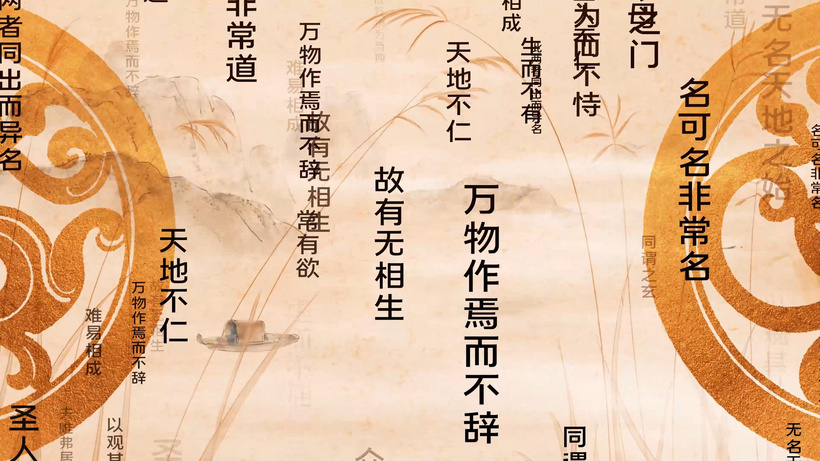 无名天地之始
名可名非常名
同谓之玄
母之门
为而不恃
生而不有
相成
天地不仁
万物作焉而不辞
故有无相生
万物作焉而不辞
故有无相生
常有欲
难易相成
非常道
常道
天地不仁
万物作焉而不辞
万物作焉而不辞
难易相成
以观其
夫唯弗居
圣人
两者同出而异名
同谓
名可名非常名
无名天